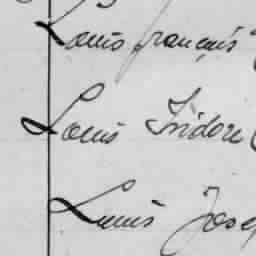 Louis françois
Louis Isidore
Louis Jose